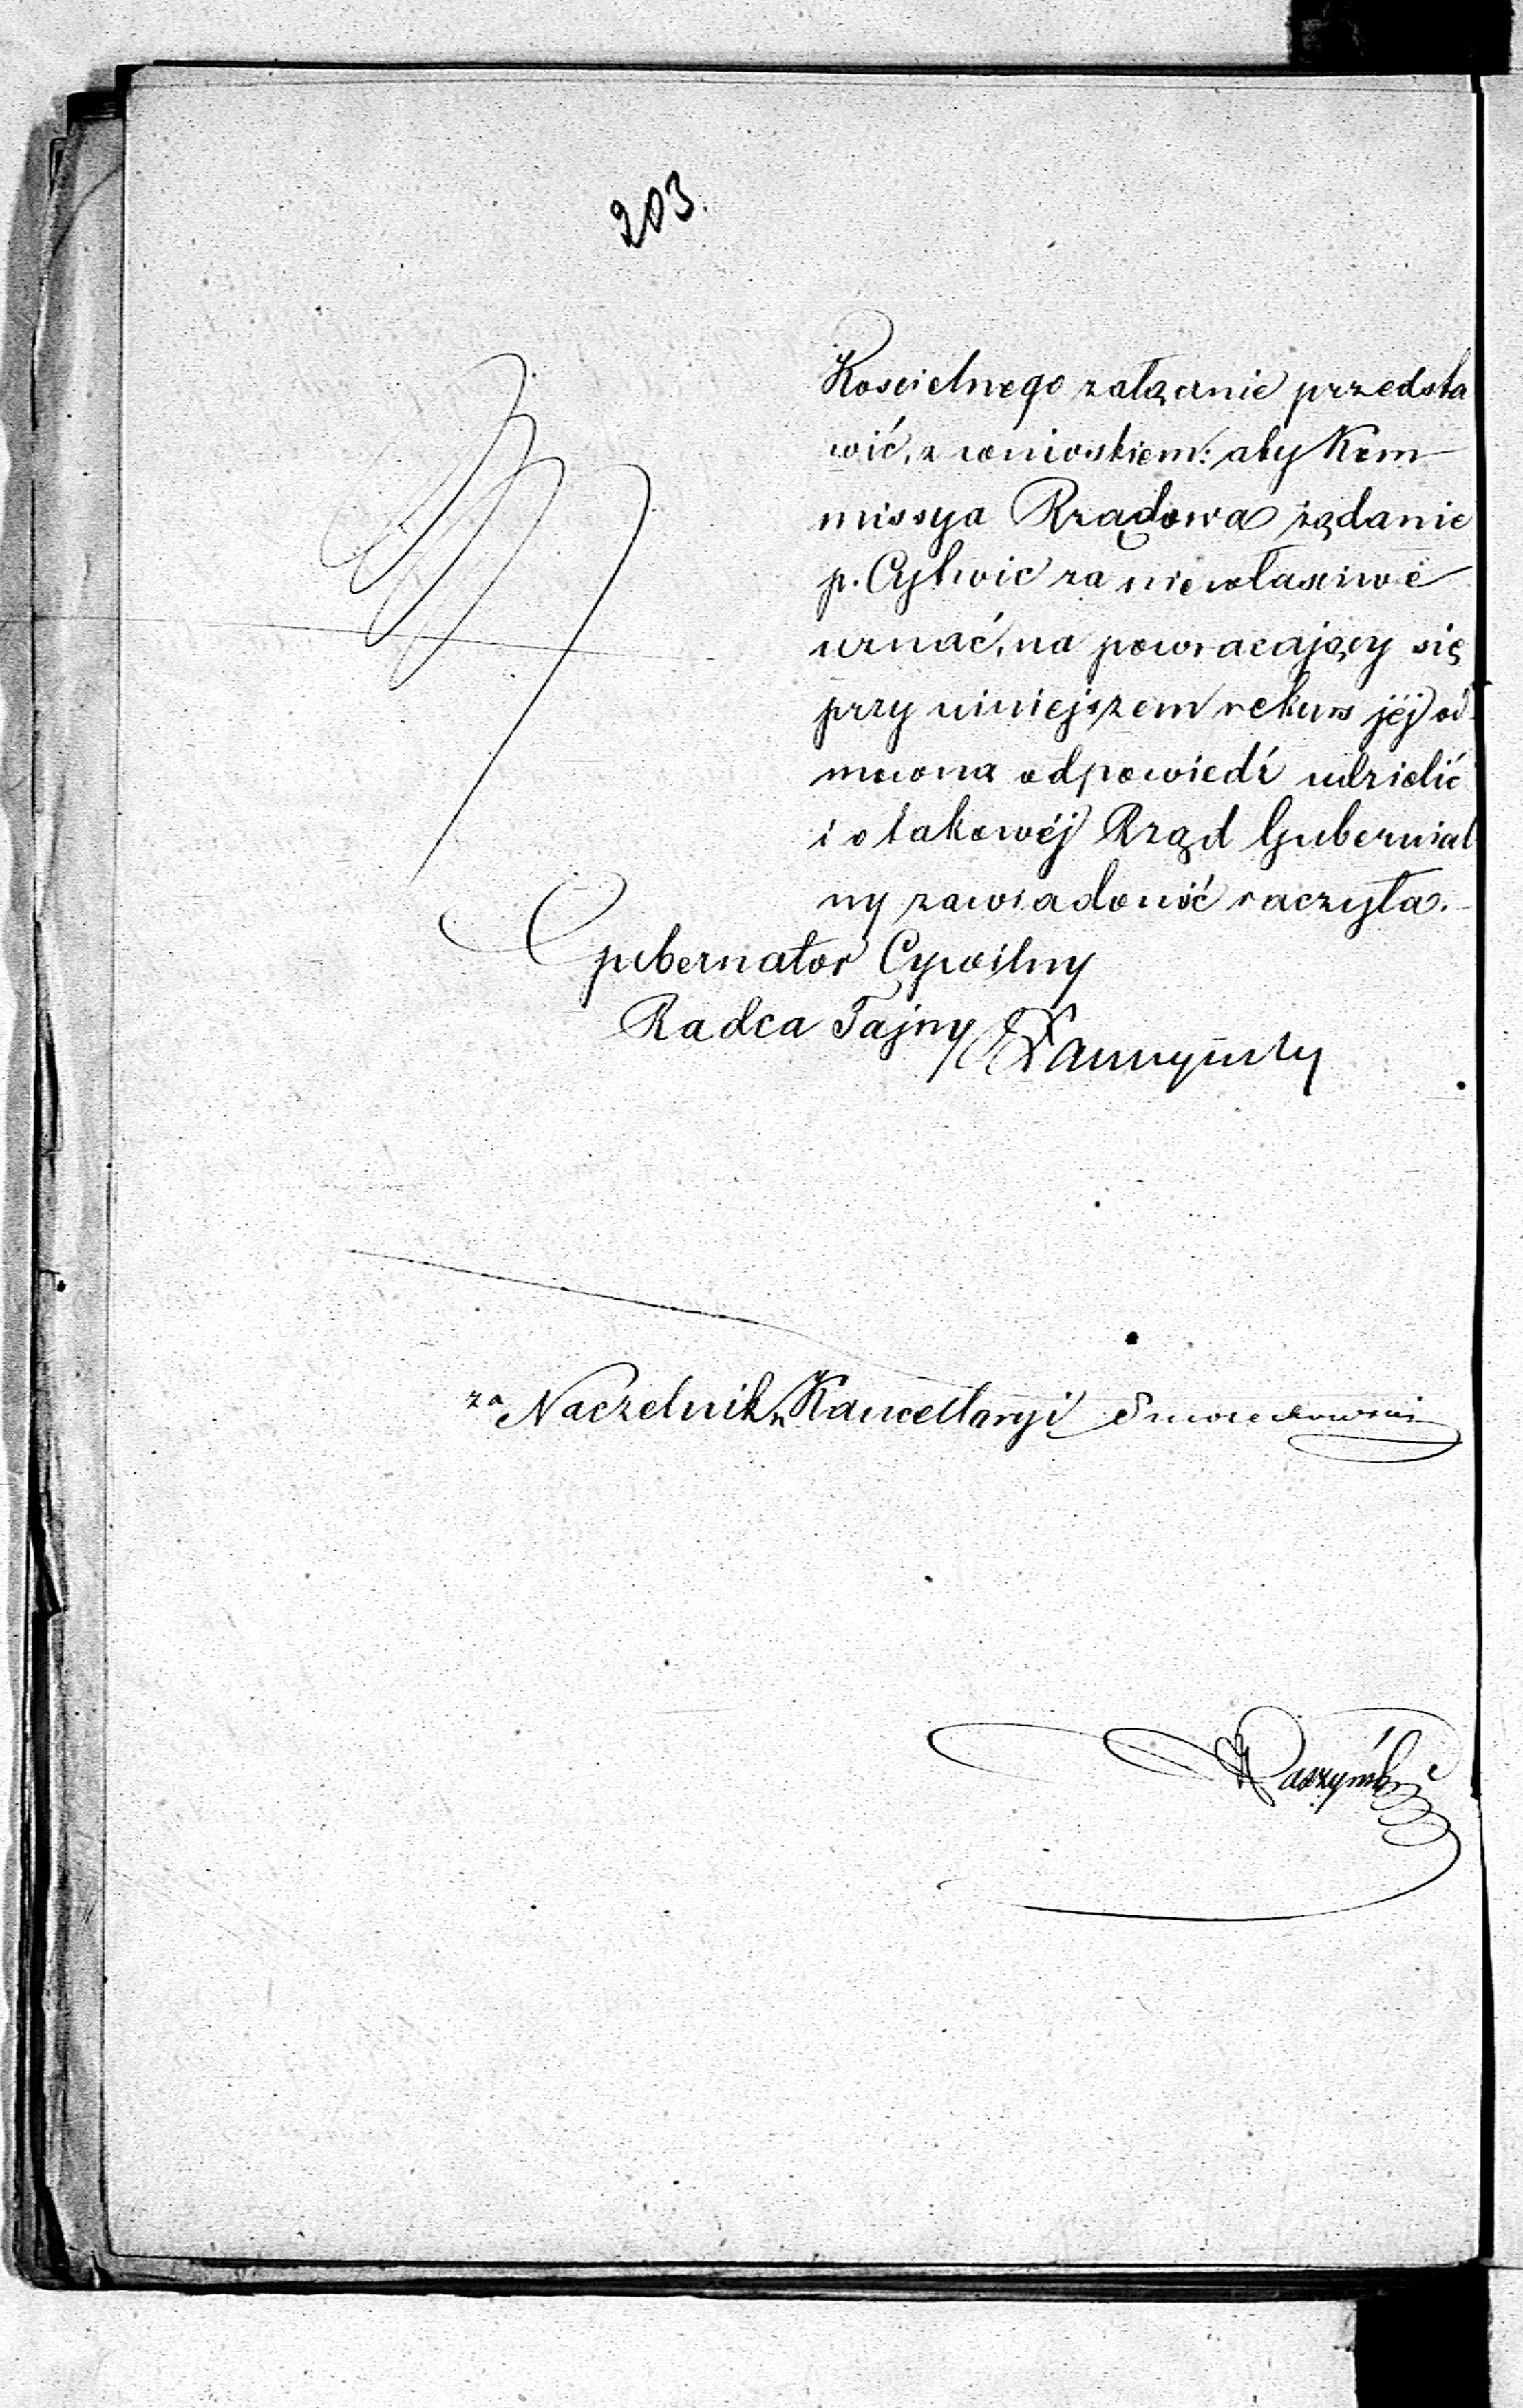 203.
Kościelnego załącznie przedsta
wić, z wnioskiem: aby Kom
missya Rządowa żądanie
p. Cytwic za niewłaściwe
uznać, na powracający się
przy niniejszem rekurs jéj od-
mowną odpowiedź udzielić
i o takowéj Rząd Gubernial
ny zawiadomić raczyła.
Gubernator Cywilny
Radca Tajny
za Naczelnika Kancellaryi
Raszyński